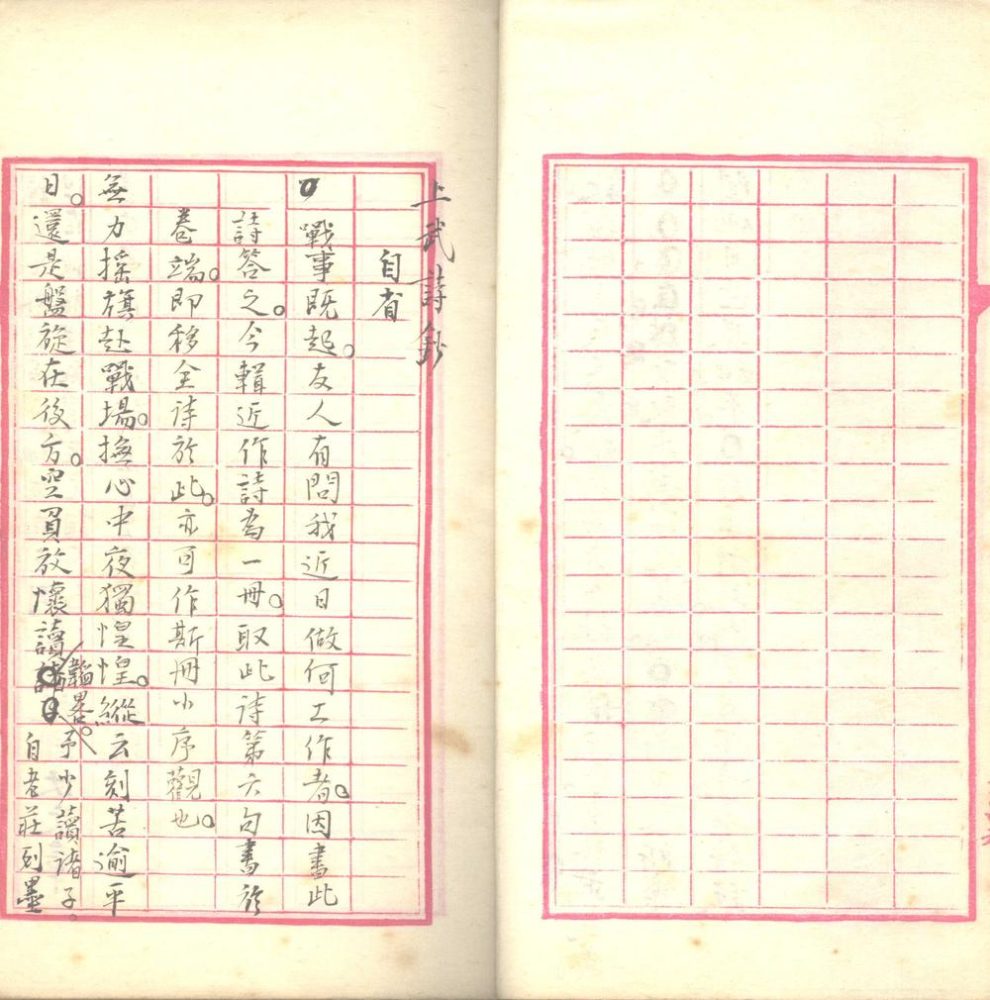 上武詩鈔
自省
戰事既起。友人有問我近日做何工作者。因書此
詩答之。今輯近作詩為一冊。取此诗第六句書於
卷端。即移全诗於此。亦可作斯冊小序觀也。
無力搖旗赴戰場。撫心中夜獨惶惶。縱云刻苦逾平
日。還是盤旋在後方。空負放懷讀韜畧。予少讀诸子。
自老莊列墨